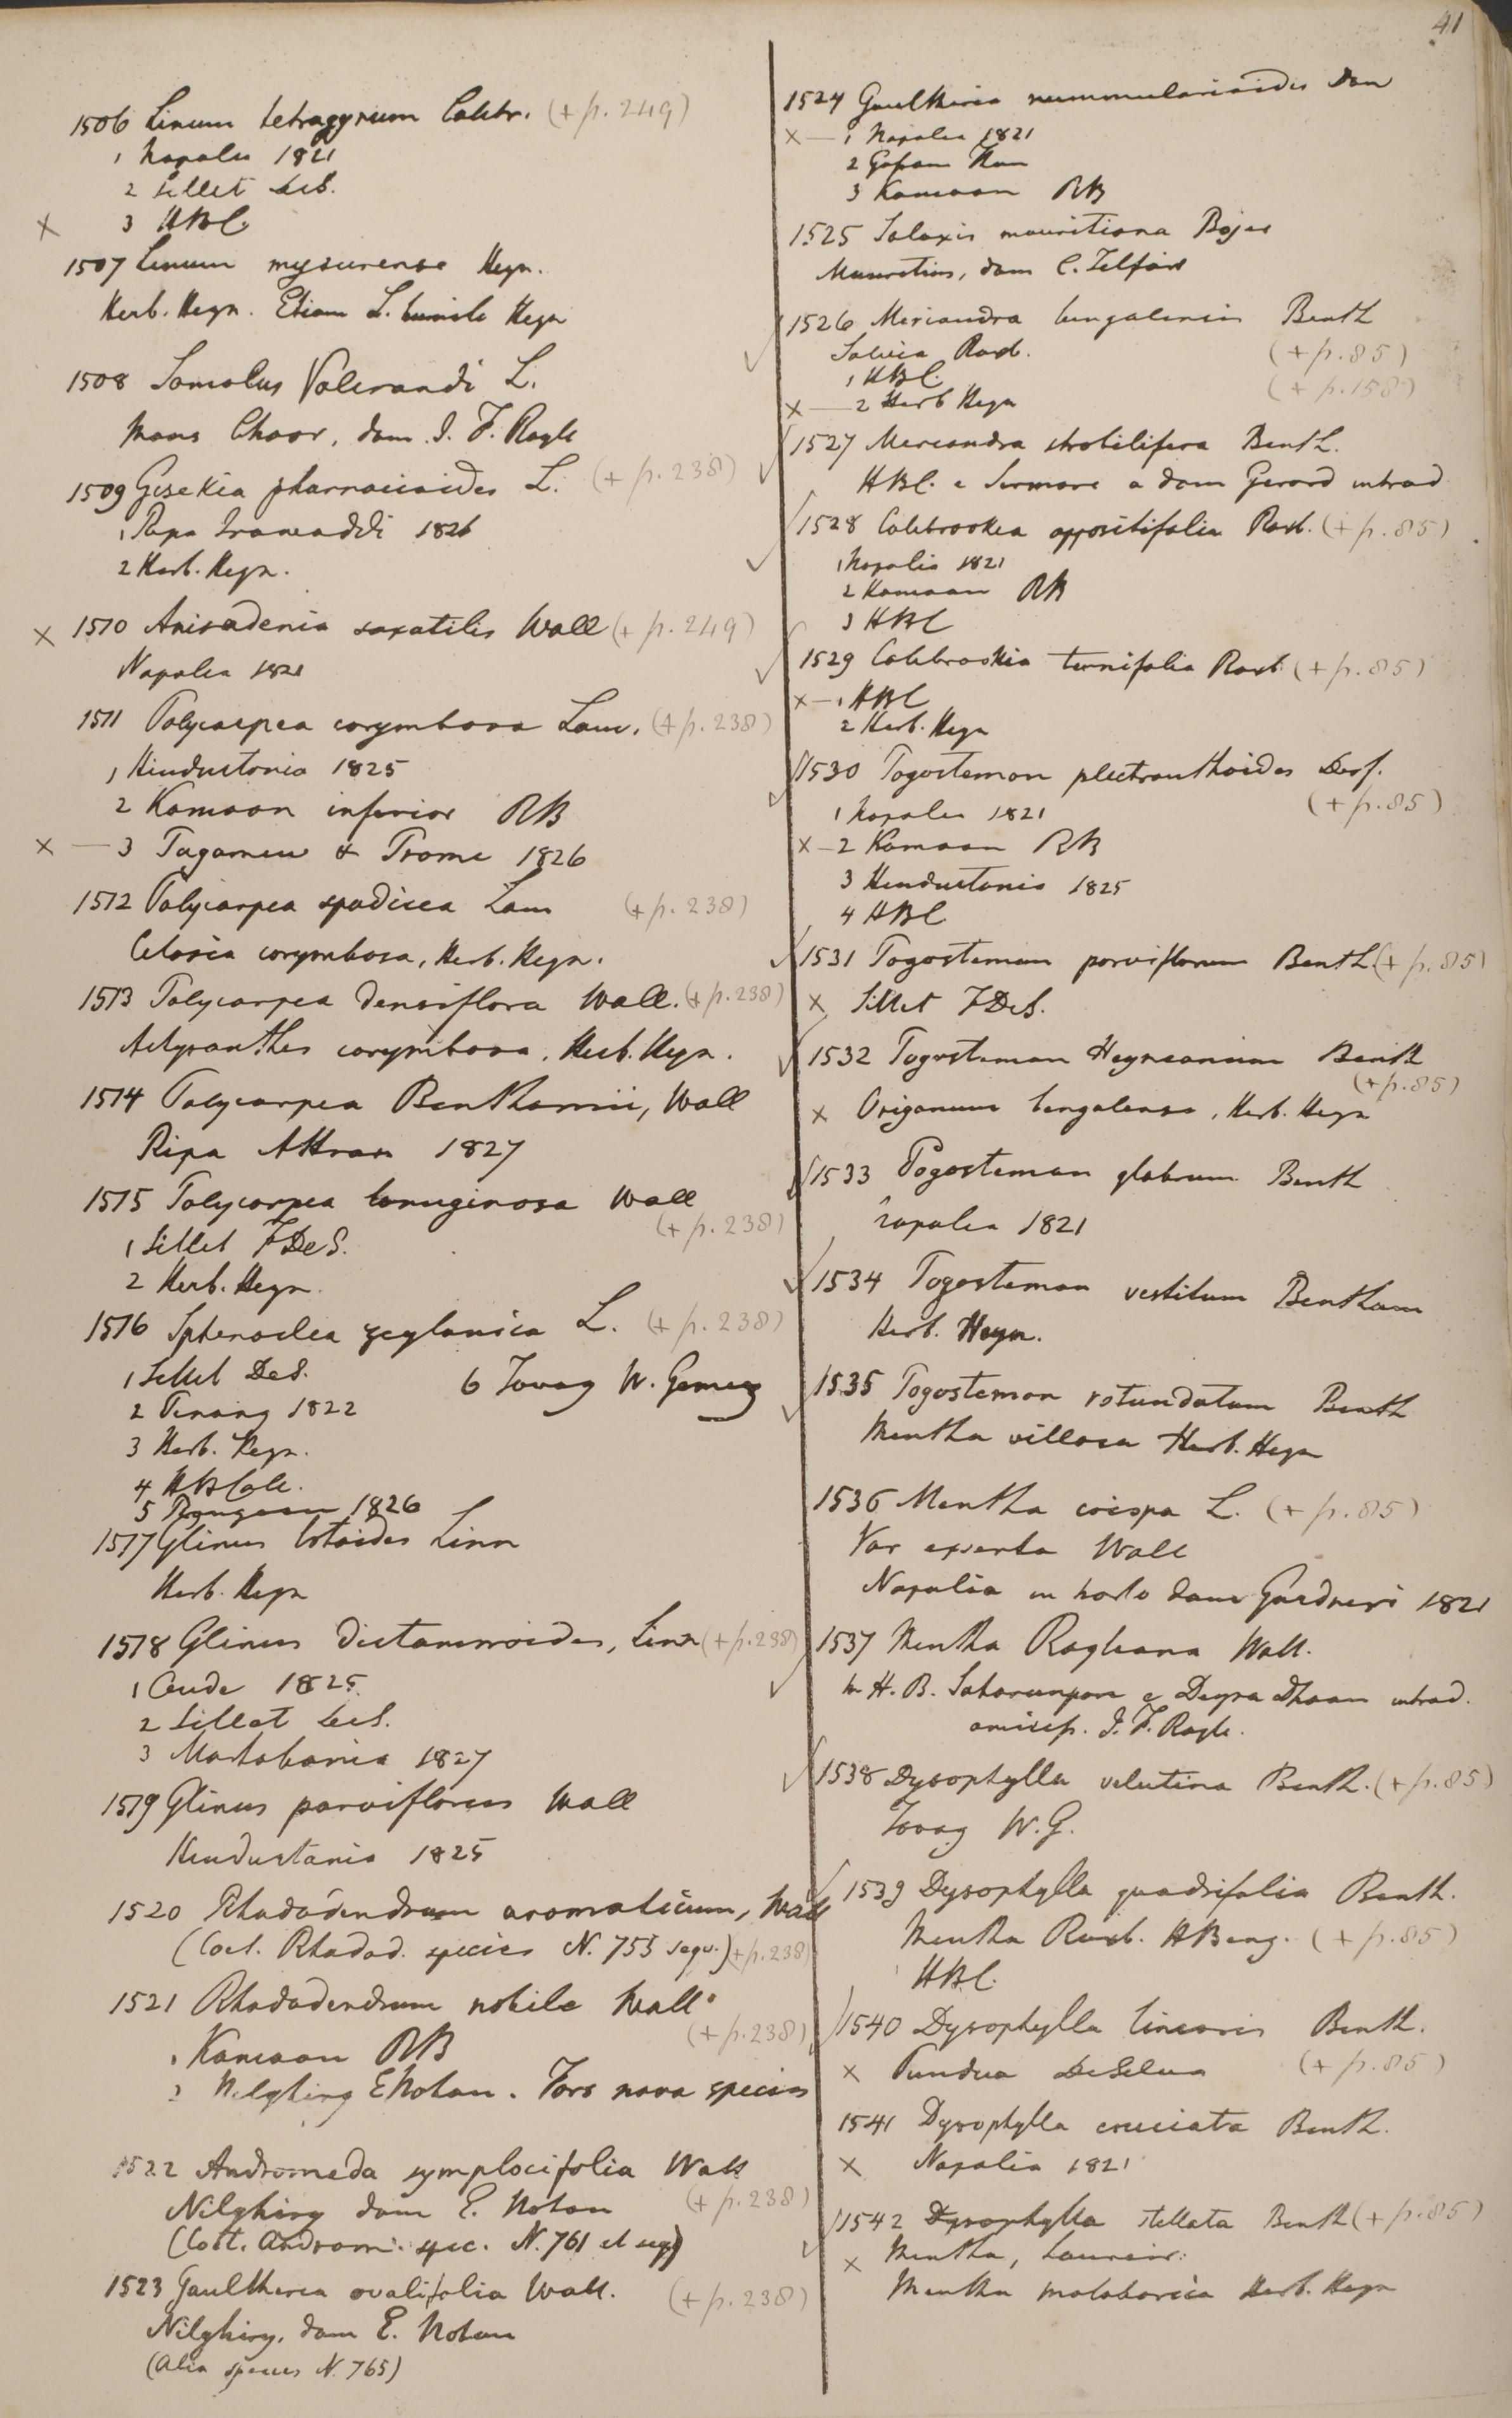 41
1506 Linum tetragynum Colebr. (+ p. 249)
1 Napalia 1821
2 Sillet
× 3 HBC.
1507 Linum mysurense Heyn.
Herb. Heyn. Etiam L. humile Heyn
1508 Samolus Valerandi L.
Chaor, dom. J. F. Royle
1509 Gisekia pharnacioides L. (+ p. 238)
1 Ripa Irawaddi 1826
2 Herb. Heyn.
× 1510 Anisadenia saxatilis Wall (+ p. 249)
Napalia 1821
1511 Polycarpea corymbosa Lam. (+ p. 238)
1 Hindustania 1825
2 Kamaon inferior RB
× — 3 Tagamew & Prome 1826
1512 Polycarpea spadicea Lam (+ p. 238)
Celosia corymbosa, Herb. Heyn.
1513 Polycarpea densiflora Wall. (+ p. 238)
Achyranthes corymbosa, Herb. Heyn.
1514 Polycarpea Benthamii, Wall
Ripa Attran 1827
1515 Polycarpea lanuginosa Wall
(+ p. 238)
1 Sillet FDeS.
2 Herb. Heyn.
1516 Sphenoclea zeylanica L. (+ p. 238)
1 Sillet DeS. 6 Tavoy W. Gomez
2 Penang 1822
3 Herb. Heyn.
4 HBCalc.
5 1826
1517 Glinus lotoides Linn
Herb. Heyn
1518 Glinus dictamnoides, Linn (+ p. 238)
1 Oude 1825.
2 Sillet
3 Martabania 1827
1519 Glinus parviflorus Wall
Hindustania 1825
1520 Rhododendrum aromaticum, Wall
(Caet. Rhodod. species N. 753 sequ.) (+ p. 238)
1521 Rhododendrum nobile Wall
(+ p. 238)
1 Kamaon RB
2 Nilghiry ENotan. Fors nova species
1522 Andromeda symplocifolia Wall
Nilghiry dom E. Noton (+ p. 238)
(Caet. Androm. spec. N. 761 et seq)
1523 Gaultheria ovalifolia Wall. (+ p. 238)
Nilghiry, dom E. Noton
(Alia species N. 765)
1524 Gaultheria nummularioides Don
× — 1 Napalia 1821
2 Gosain Than
3 Kamaon RB
1525 Salaxis mauritiana Bojer
Mauritius, dom C. Telfair
1526 Meriandra bengalensis Benth
Salvia Roxb. (+ p. 85)
1 HBC. (+ p. 158)
× — 2 Herb Heyn
1527 Meriandra strobilifera Benth.
HBC. e Sirmore a dom Gerard introd
1528 Colebrookea oppositifolia Roxb. (+ p. 85)
1 Napalia 1821
2 Kamaon RB
3 HBC
1529 Colebrookia ternifolia Roxb (+ p. 85)
× — 1 HBC
2 Herb. Heyn
1530 Pogostemon plectranthoides Desf.
(+ p. 85)
1 Napalia 1821
× — 2 Kamaon RB
3 Hindustania 1825
4 HBC
1531 Pogostemon parviflorum Benth (+ p. 85)
× Sillet FDeS.
1532 Pogostemon Heyneanum Benth
(+ p. 85)
× Origanum bengalense, Herb. Heyn
1533 Pogostemon glabrum Benth
Napalia 1821
1534 Pogostemon vestitum Bentham
Herb. Heyn.
1535 Pogostemon rotundatum Benth
Mentha villosa Herb. Heyn
1536 Mentha crispa L. (+ p. 85)
Var exserta Wall
Napalia in horto dom Gardneri 1821
1537 Mentha Royleana Wall.
in H. B. Saharunpore e Deyra Dhoon introd.
amicis. J. F. Royle.
1538 Dysophylla velutina Benth. (+ p. 85)
Tavoy W. G.
1539 Dysophylla quadrifolia Benth.
Mentha Roxb. HBeng. (+ p. 85)
HBC.
1540 Dysophylla linearis Benth.
× Pundua DeSilva (+ p. 85)
1541 Dysophylla cruciata Benth.
× Napalia 1821
1542 Dysophylla stellata Benth (+ p. 85)
× Mentha, Loureir.
Mentha malabarica Herb. Heyn